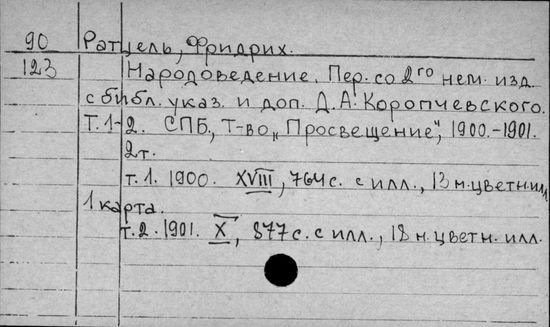 90 Ратцель, Фридрих.
123 Народоведение. Пер. со 2го нем. изд.
с библ. указ. и доп. Д.А. Коропчевского.
Т.1-2. СПБ, Т-во „Просвещение", 1900.-1901.
2т.
т.1. 1900. XVIII, 764с. с илл., 13 н.цветн.илл
1 карта.
т.2. 1901. X, 877с. с илл., 18 н.цветн. илл.